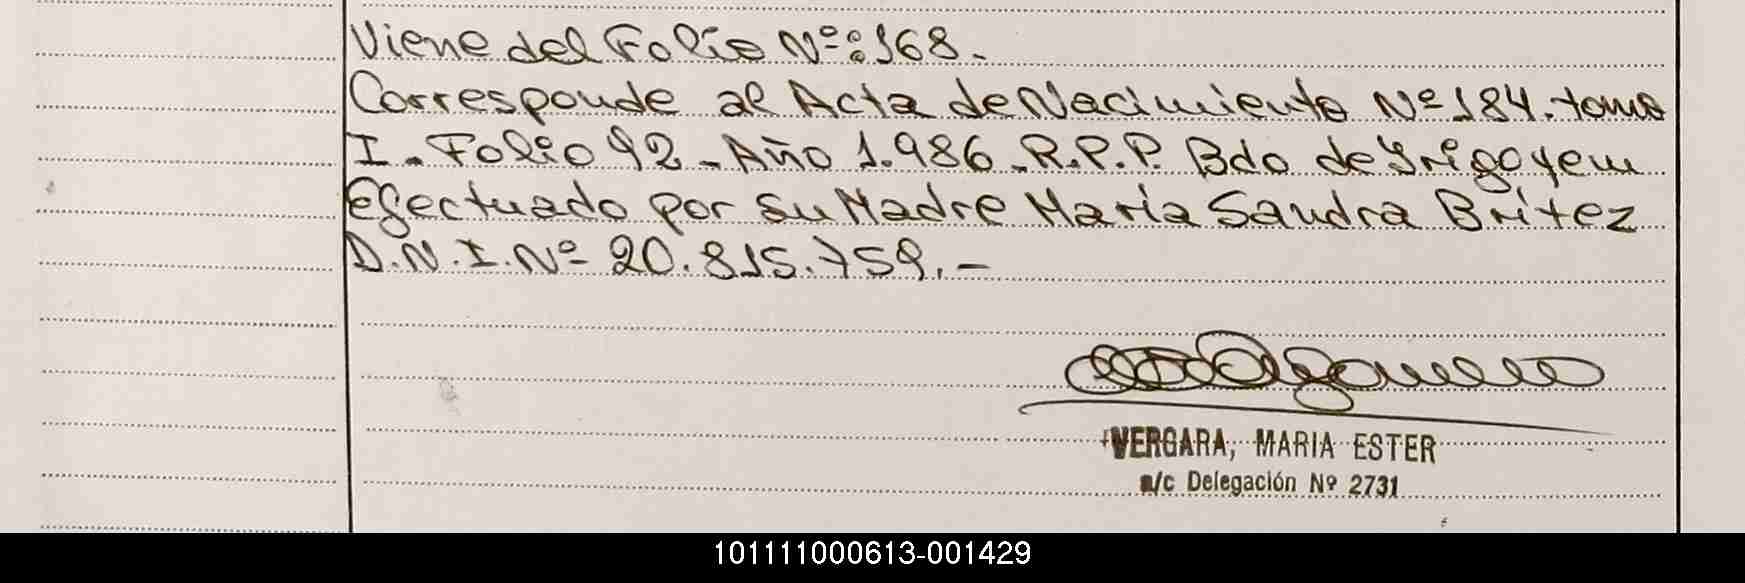 Viene del Folio Nº:168.
Corresponde al Acta de Nacimiento Nº 184. tomo
I. Folio 92 - Año 1.986 - R.P.P. Bdo de Yrigoyem
Efectuado por su Madre Maria Sandra Britez
D.N.I. Nº 20.815.759.-
VERGARA, MARIA ESTER
a/c Delegación Nº 2731
101111000613-001429